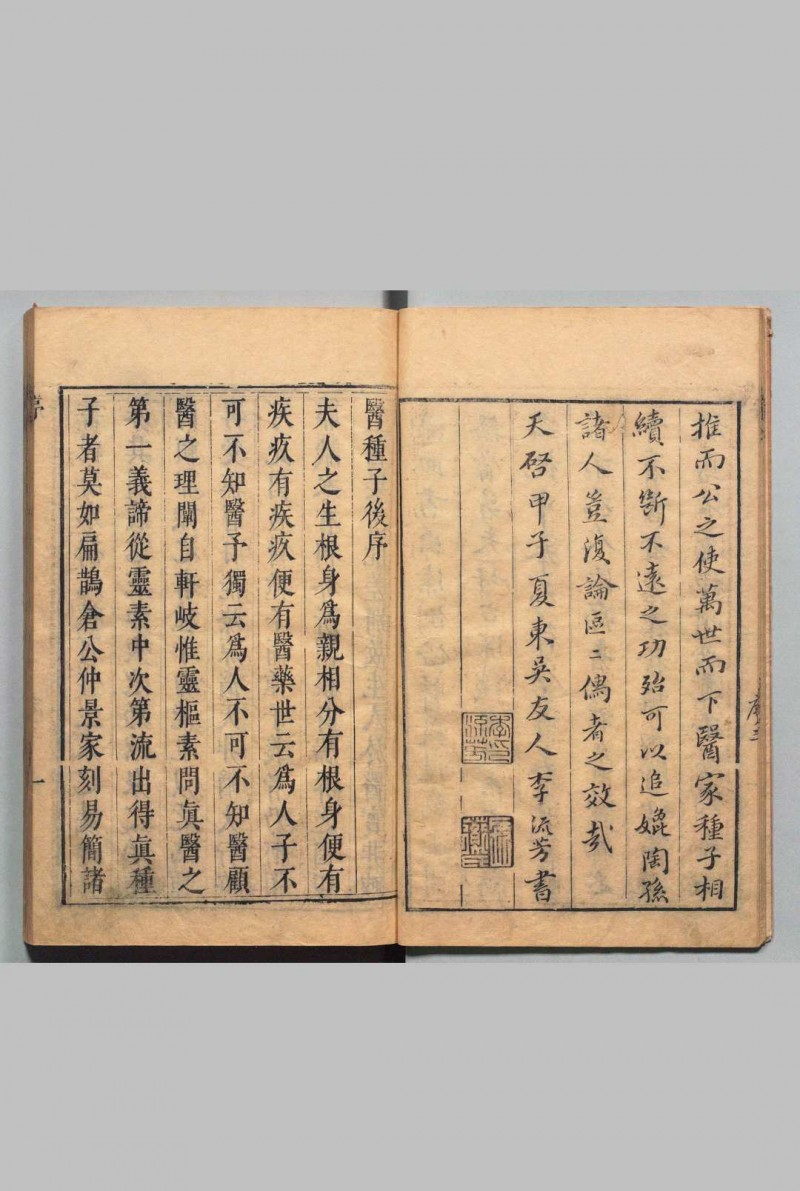 推而公之使萬世而下醫家種子相
續不斷不遠之功殆可以追媲陶孫
諸人豈復論區〻偶者之效哉
天啓甲子夏東吳友人李流芳書
醫種子後序
夫人之生根身爲親相分有根身便有
疾疚有疾疚便有醫藥世云爲人子不
可不知醫予獨云爲人不可不知醫顧
醫之理闡自軒岐惟靈樞素問眞醫之
第一義諦從靈素中次第流出得眞種
子者莫如扁鵲倉公仲景家刻易簡諸
序
一